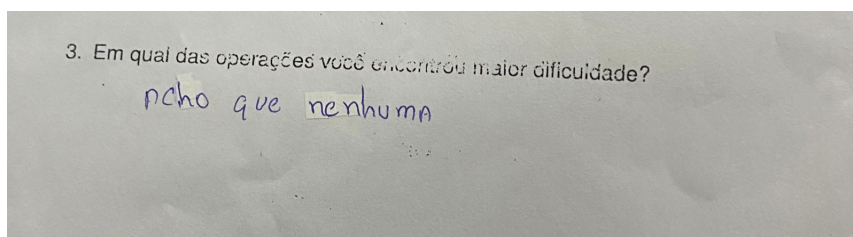 3. Em qual das operações você encontrou maior dificuldade?
Acho que nenhuma